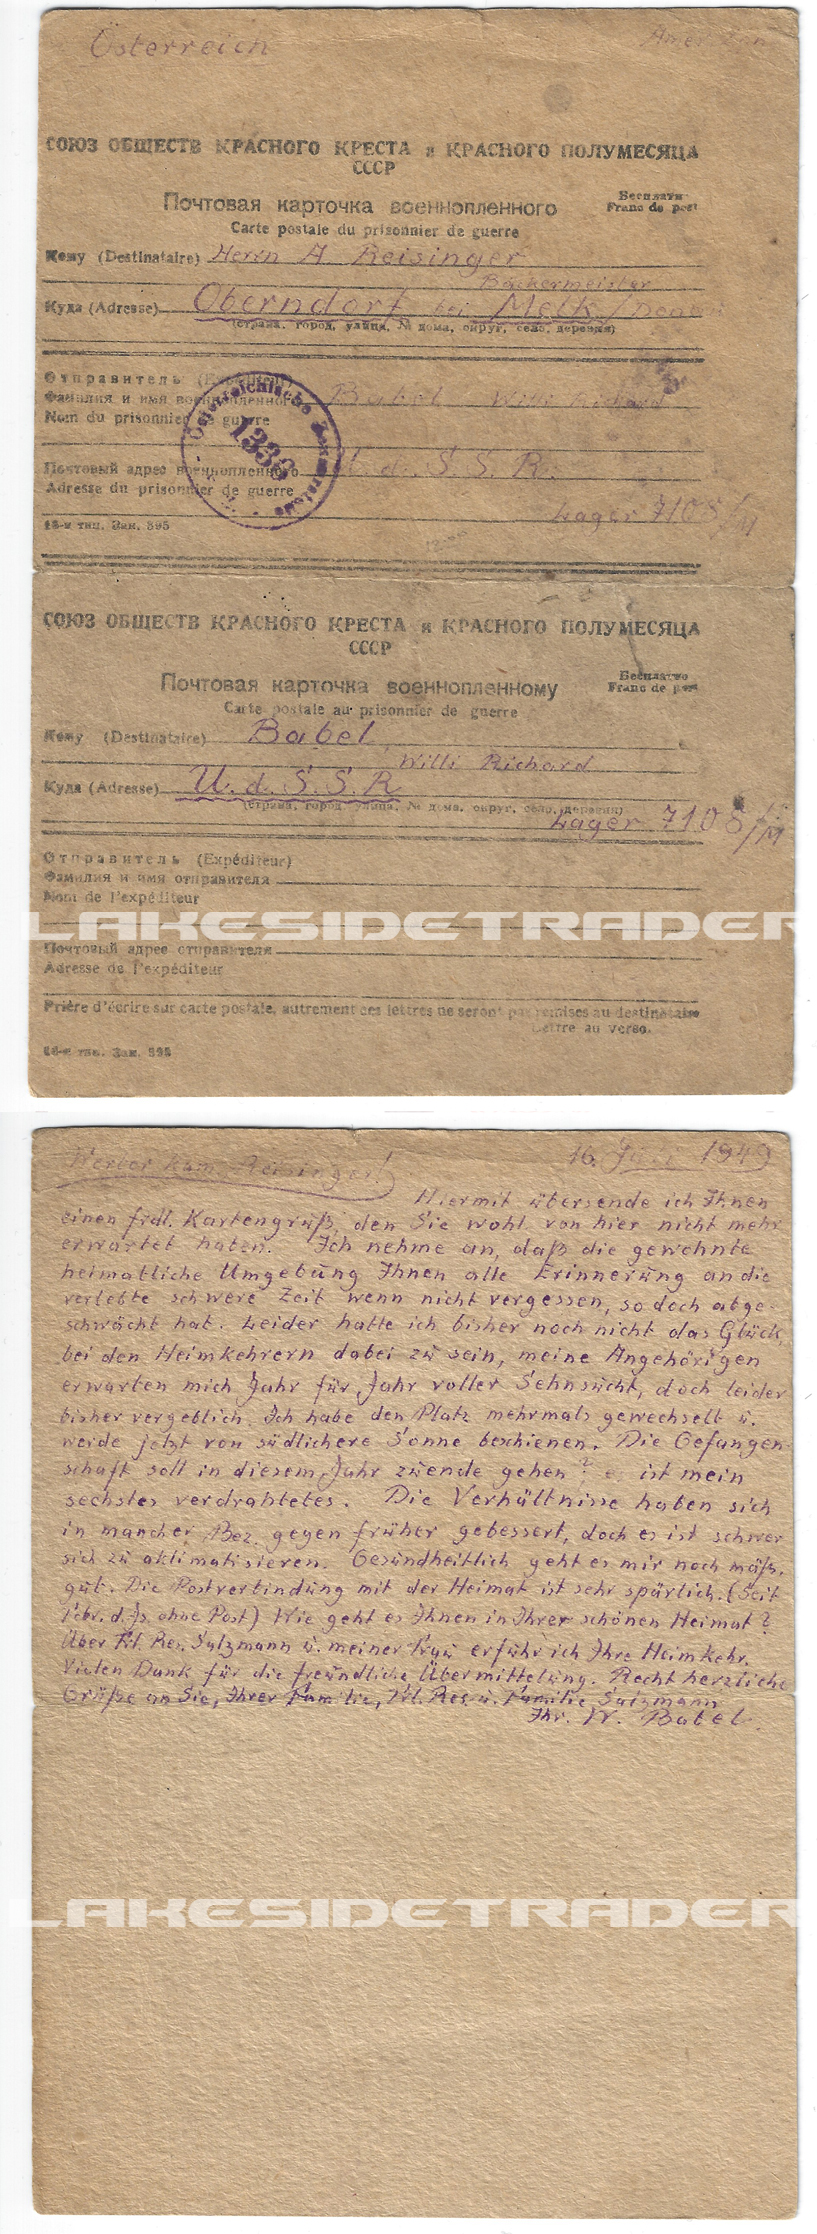 Österreich
СОЮЗ ОБЩЕСТВ КРАСНОГО КРЕСТА и КРАСНОГО ПОЛУМЕСЯЦА
СССР
Почтовая карточка военнопленного
Бесплатно
Carte postale du prisonnier de guerre
Franc de port
Кому (Destinataire) Herrn A Reisinger
Bäckermeister
Куда (Adresse) Oberndorf bei Melk/Donau
(страна, город, улица, № дома, округ, село, деревня)
Отправитель (Expéditeur)
Фамилия и имя военнопленного Babel Willi Richard
Nom du prisonnier de guerre
Österreichische Zensurstelle
1336
Почтовый адрес военнопленного U.d.S.S.R.
Adresse du prisonnier de guerre
Lager 7108/M
16-я тип. Зак. 395
СОЮЗ ОБЩЕСТВ КРАСНОГО КРЕСТА и КРАСНОГО ПОЛУМЕСЯЦА
СССР
Почтовая карточка военнопленному
Бесплатно
Carte postale au prisonnier de guerre
Franc de port
Кому (Destinataire) Babel,
Willi Richard
Куда (Adresse) U.d.S.S.R
(страна, город, улица, № дома, округ, село, деревня)
Lager 7108/M
Отправитель (Expéditeur)
Фамилия и имя отправителя
Nom de l'expéditeur
LAKESIDETRADER
Почтовый адрес отправителя
Adresse de l'expéditeur
Prière d'écrire sur carte postale, autrement ces lettres ne seront pas remises au destinataire
Lettre au verso.
16-я тип. Зак. 395
Werter Kam. Reisinger! 16. Juli 1949
Hiermit übersende ich Ihnen
einen frdl. Kartengruß, den Sie wohl von hier nicht mehr
erwartet haben. Ich nehme an, daß die gewohnte
heimatliche Umgebung Ihnen alle Erinnerung an die
verlebte schwere Zeit wenn nicht vergessen, so doch abge-
schwächt hat. Leider hatte ich bisher noch nicht das Glück,
bei den Heimkehrern dabei zu sein, meine Angehörigen
erwarten mich Jahr für Jahr voller Sehnsucht, doch leider
bisher vergeblich. Ich habe den Platz mehrmals gewechselt u.
werde jetzt von südlichere Sonne beschienen. Die Gefangen-
schaft soll in diesem Jahr zuende gehen? es ist mein
sechstes verdrahtetes. Die Verhältnisse haben sich
in mancher Bez. gegen früher gebessert, doch es ist schwer
sich zu aklimatisieren. Gesundheitlich geht es mir noch mäß.
gut. Die Postverbindung mit der Heimat ist sehr spärlich. (Seit
Febr. d. Js. ohne Post) Wie geht es Ihnen in Ihrer schönen Heimat?
Über Frl. Res. Salzmann u. meiner Frau erfuhr ich Ihre Heimkehr.
Vielen Dank für die freundliche Übermittelung. Recht herzliche
Grüße an Sie, Ihrer Familie, Frl. Res. u. Familie Salzmann
Ihr. W. Babel.
LAKESIDETRADER